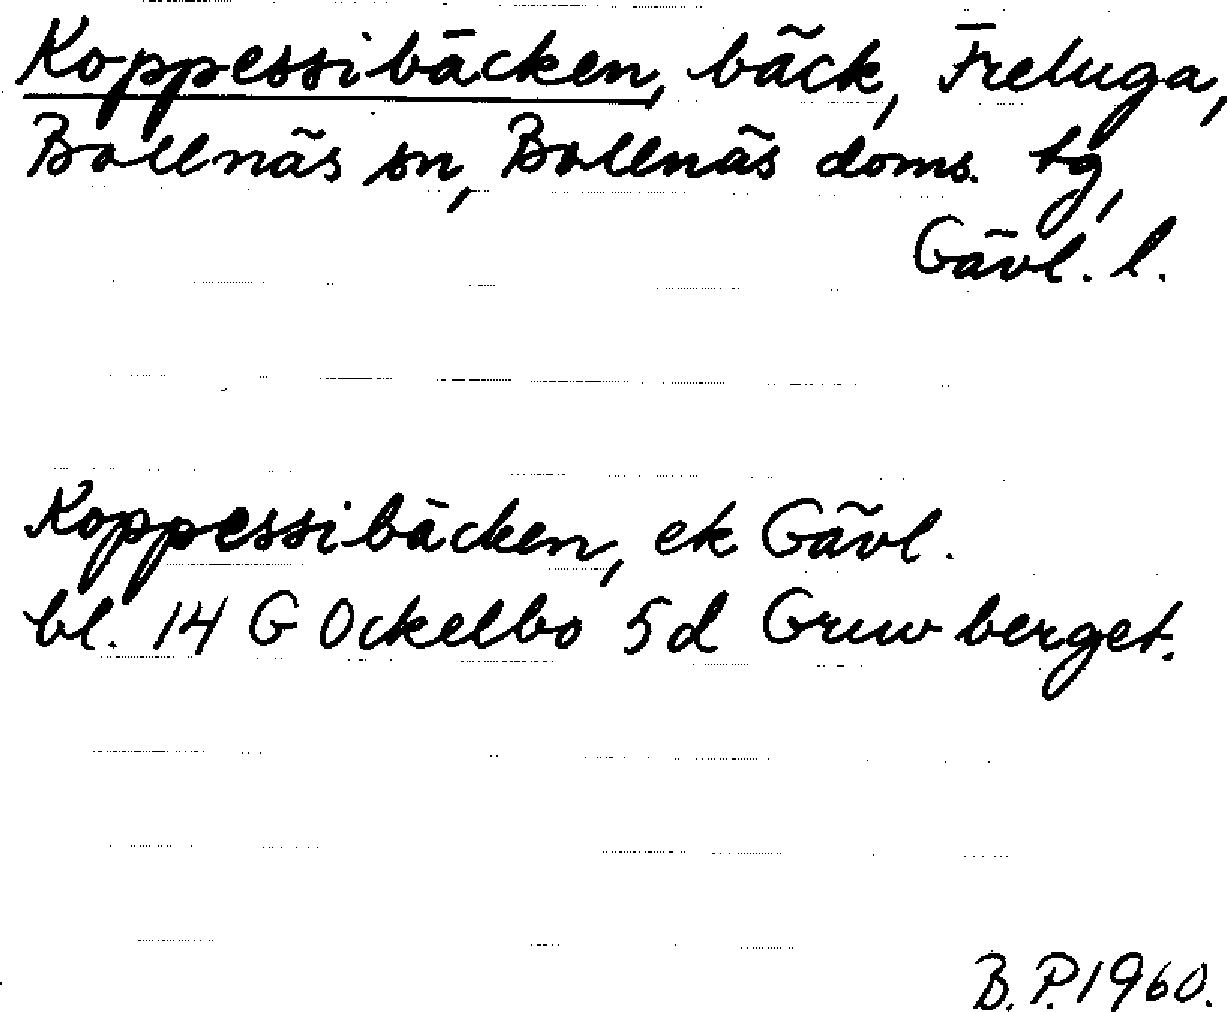 Koppessibäcken, bäck, Freluga,
Bollnäs sn, Bollnäs doms. tg,
Gävl. l.
Koppessibäcken, ek Gävl.
bl. 14 G Ockelbo 5d Gruvberget.
B.P. 1960.